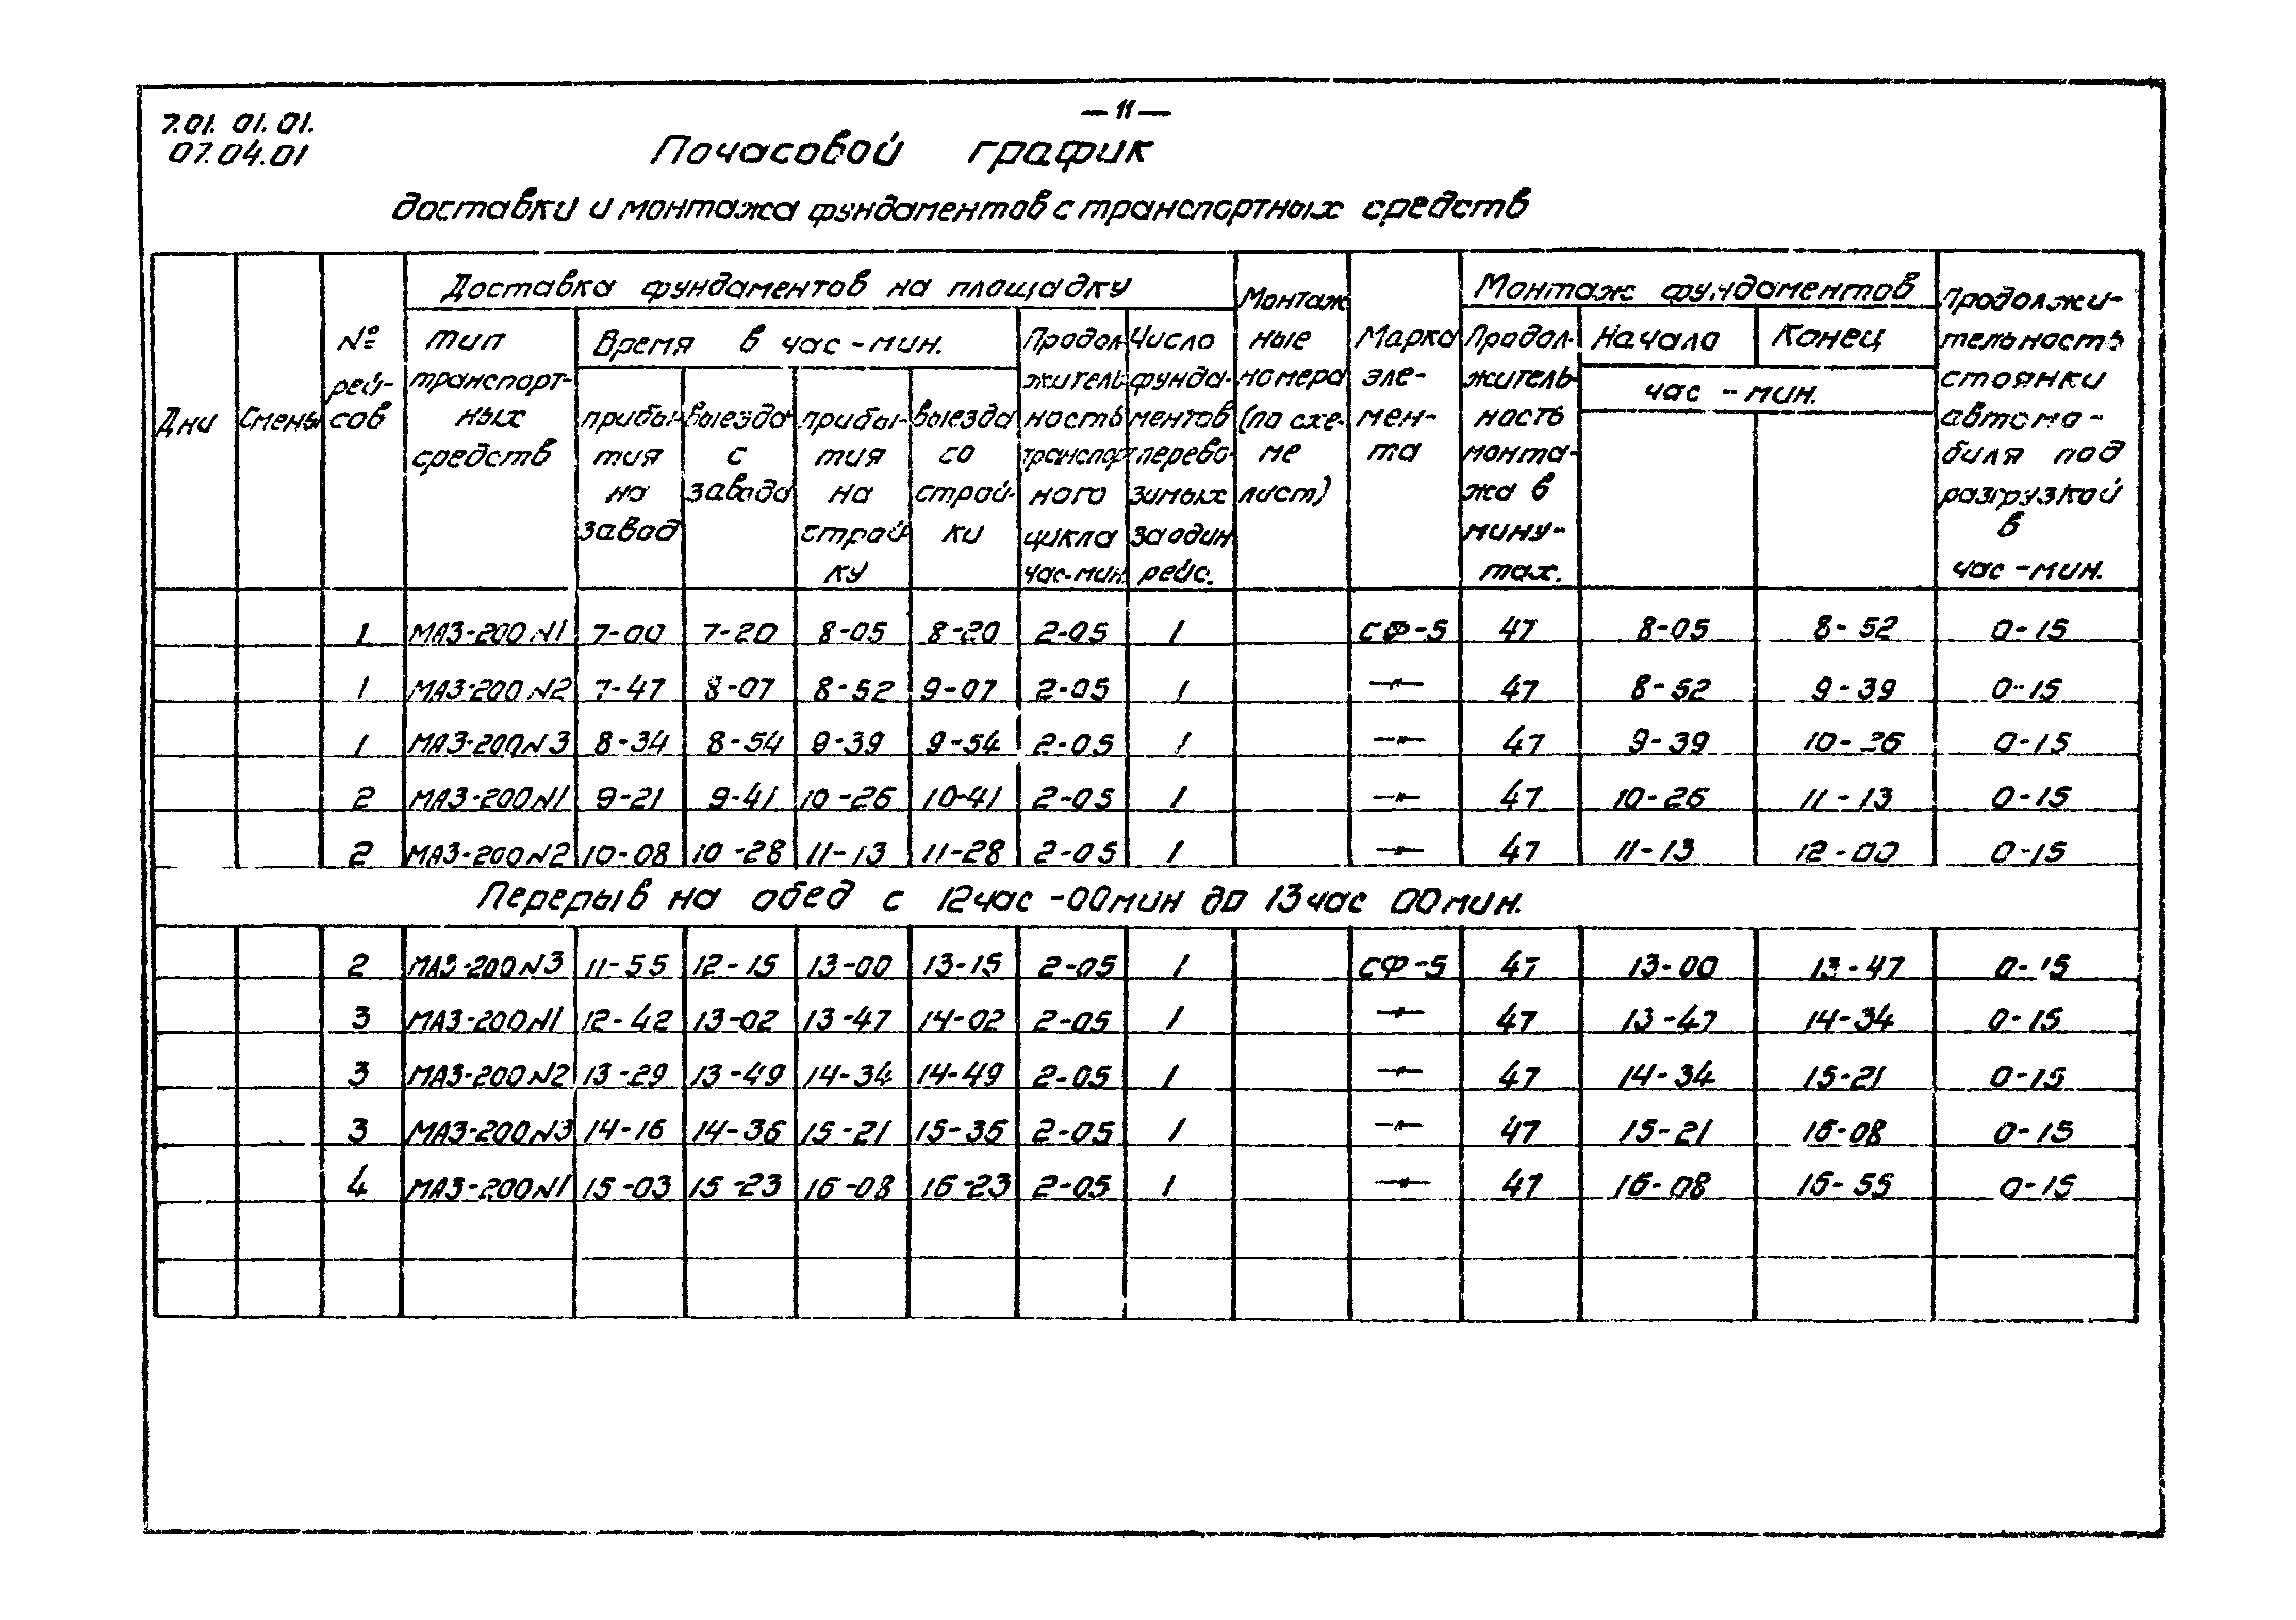 — 11 —
7.01. 01. 01.
07.04.01
Почасовой график
доставки и монтажа фундаментов с транспортных средств
Дни
Смены
№ рей-
сов
Доставка фундаментов на площадку
тип
транспорт-
ных
средств
Время в час-мин.
прибы-
тия
на
завод
выезда
с
завода
прибы-
тия
на
строй-
ку
выезда
со
строй-
ки
Продол-
житель-
ность
транспорт
ного
цикла
час-мин.
Число
фунда-
ментов
перево-
зимых
за один
рейс.
Монтаж
ные
номера
(по схе-
ме
лист)
Марка
эле-
мен-
та
Монтаж фундаментов
Продол-
житель-
ность
монта-
жа в
мину-
тах.
Начало
Конец
час - мин.
Продолжи-
тельность
стоянки
автомо-
биля под
разгрузкой
в
час - мин.
1 МАЗ-200 N1 7-00 7-20 8-05 8-20 2-05 1 СФ-5 47 8-05 8-52 0-15
1 МАЗ-200 N2 7-47 8-07 8-52 9-07 2-05 1 —"— 47 8-52 9-39 0-15
1 МАЗ-200 N3 8-34 8-54 9-39 9-54 2-05 1 —"— 47 9-39 10-26 0-15
2 МАЗ-200 N1 9-21 9-41 10-26 10-41 2-05 1 —"— 47 10-26 11-13 0-15
2 МАЗ-200 N2 10-08 10-28 11-13 11-28 2-05 1 —"— 47 11-13 12-00 0-15
Перерыв на обед с 12час -00мин до 13час 00мин.
2 МАЗ-200 N3 11-55 12-15 13-00 13-15 2-05 1 СФ-5 47 13-00 13-47 0-15
3 МАЗ-200 N1 12-42 13-02 13-47 14-02 2-05 1 —"— 47 13-47 14-34 0-15
3 МАЗ-200 N2 13-29 13-49 14-34 14-49 2-05 1 —"— 47 14-34 15-21 0-15
3 МАЗ-200 N3 14-16 14-36 15-21 15-36 2-05 1 —"— 47 15-21 16-08 0-15
4 МАЗ-200 N1 15-03 15-23 16-08 16-23 2-05 1 —"— 47 16-08 16-55 0-15